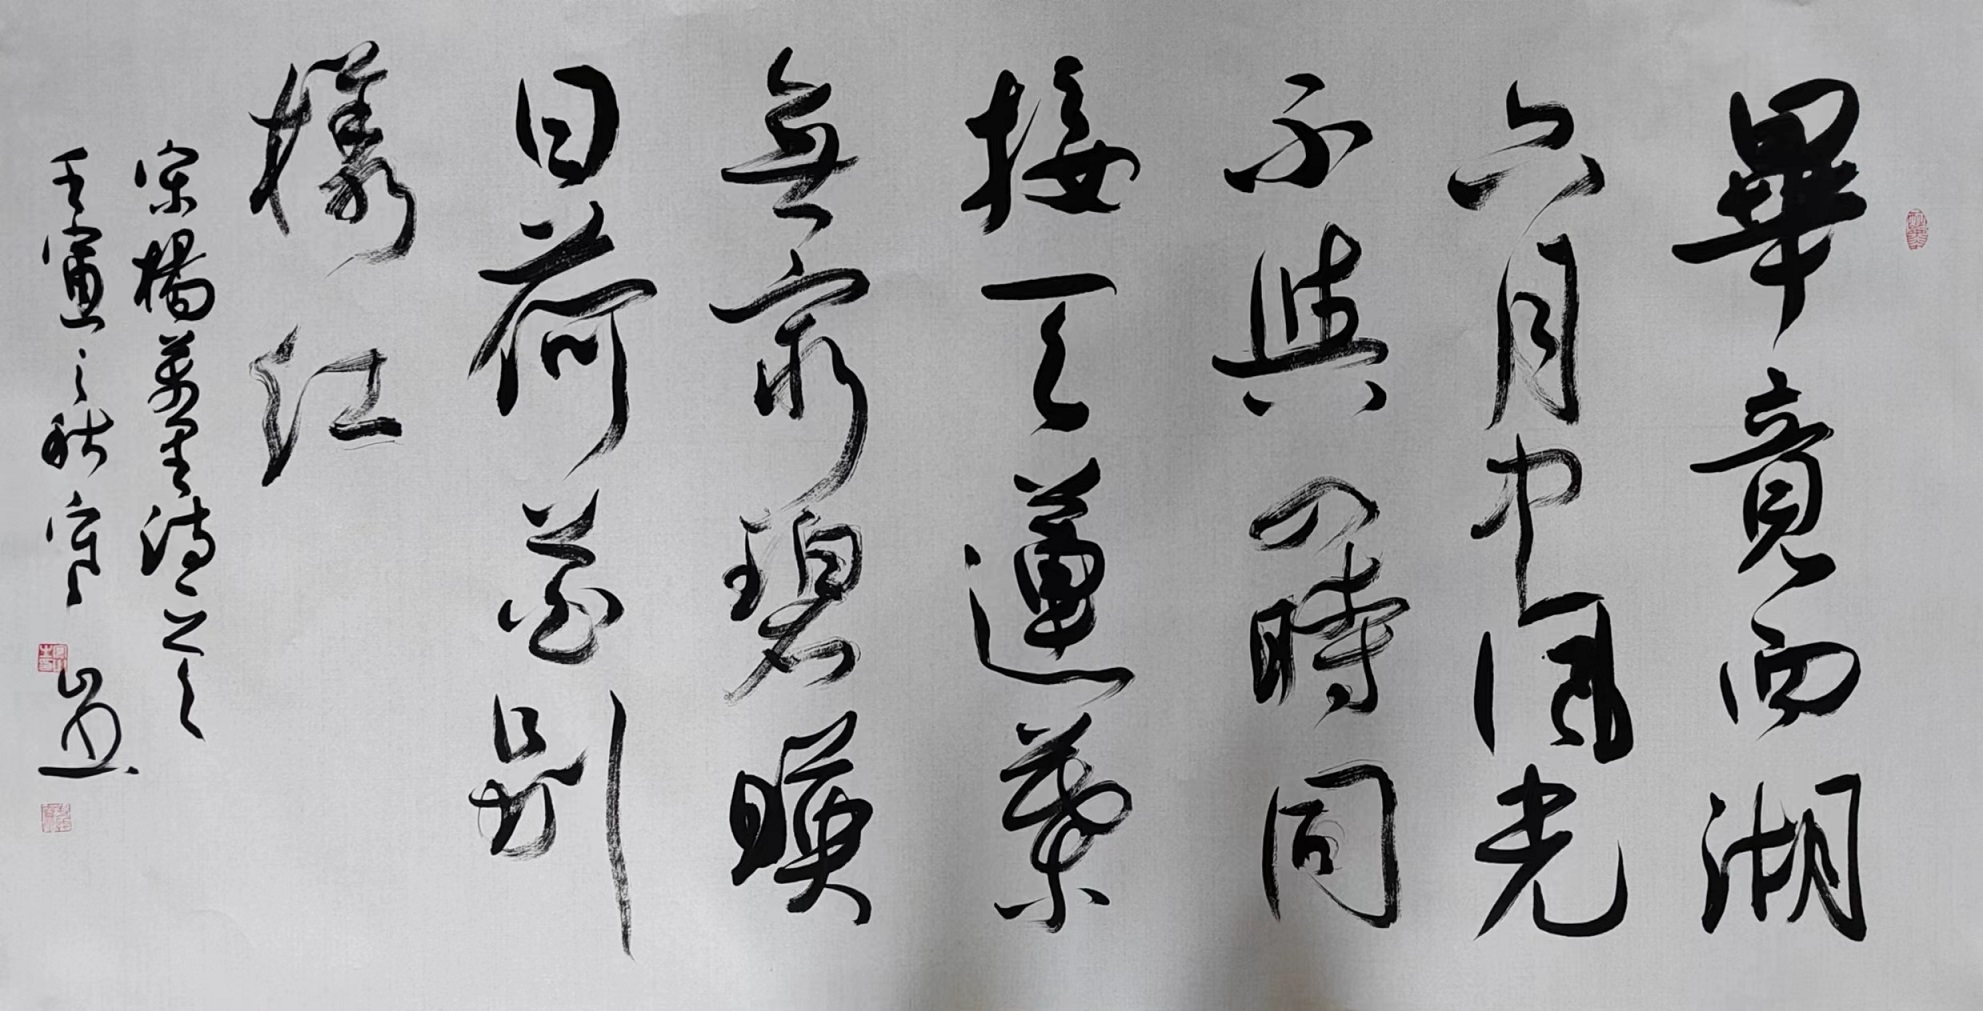 畢竟西湖
六月中風光
不與四時同
接天蓮葉
無窮碧暎
日荷花別
樣紅
宋楊萬里詩
壬寅之秋